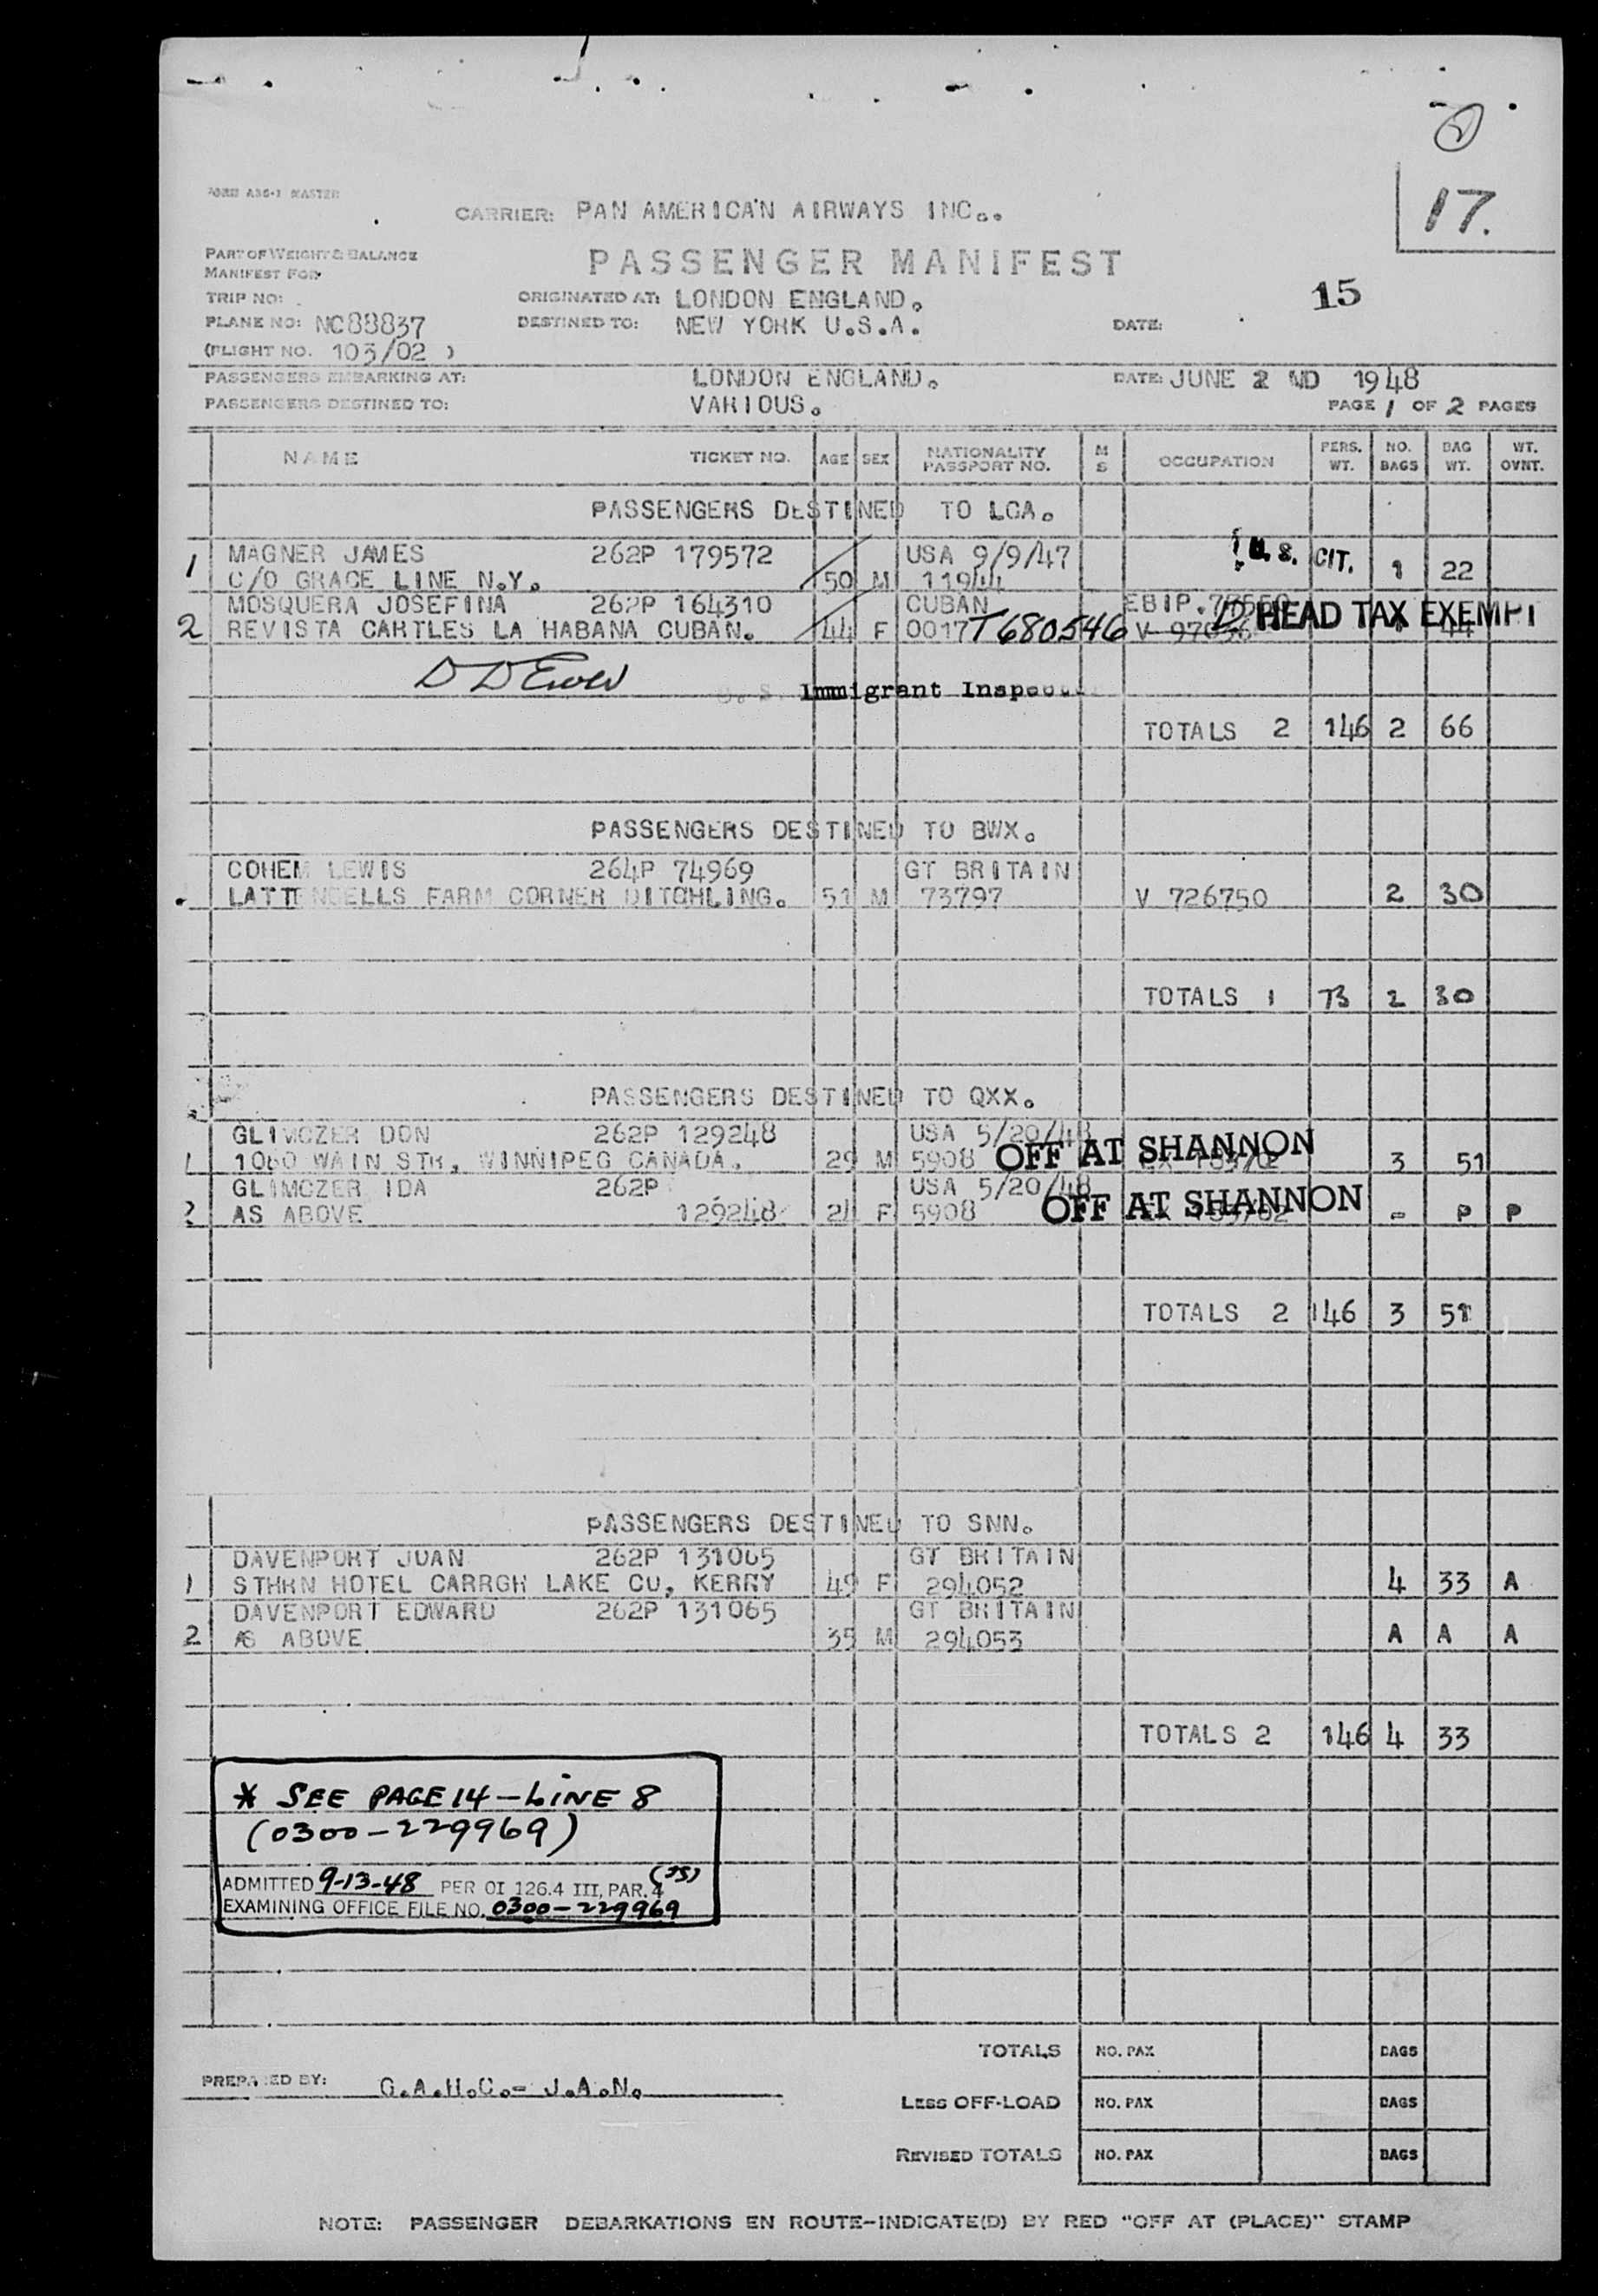 17.
FORM A36-1 MASTER
CARRIER: PAN AMERICAN AIRWAYS INC..
PART OF WEIGHT & BALANCE
MANIFEST FOR
PASSENGER MANIFEST
15
TRIP NO:
ORIGINATED AT: LONDON ENGLAND.
PLANE NO: NC88837
DESTINED TO: NEW YORK U.S.A.
DATE:
(FLIGHT NO. 103/02 )
PASSENGERS EMBARKING AT: LONDON ENGLAND. DATE: JUNE 2 ND 1948
PASSENGERS DESTINED TO: VARIOUS. PAGE 1 OF 2 PAGES
NAME TICKET NO. AGE SEX NATIONALITY PASSPORT NO. M S OCCUPATION PERS. WT. NO. BAGS BAG WT. WT. OVNT.
PASSENGERS DESTINED TO LGA.
MAGNER JAMES 262P 179572 USA 9/9/47 U.S. CIT.
1 C/O GRACE LINE N.Y. 50 M 11944 1 22
MOSQUERA JOSEFINA 262P 164310 CUBAN EBIP. HEAD TAX EXEMPT
2 REVISTA CARTLES LA HABANA CUBAN. 44 F 0017 T680546 V 44
U.S. Immigrant Inspector
TOTALS 2 146 2 66
PASSENGERS DESTINED TO BWX.
COHEM LEWIS 264P 74969 GT BRITAIN
FARM CORNER DITCHLING. 51 M 73797 V 726750 2 30
TOTALS 1 73 2 30
PASSENGERS DESTINED TO QXX.
GLIMCZER DON 262P 129248 USA 5/20/48
1 1060 WAIN STR, WINNIPEG CANADA. 29 M 5908 OFF AT SHANNON 3 51
GLIMCZER IDA 262P USA 5/20/48
2 AS ABOVE 129248 24 F 5908 OFF AT SHANNON - P P
TOTALS 2 146 3 51
PASSENGERS DESTINED TO SNN.
DAVENPORT JOAN 262P 131065 GT BRITAIN
1 STHRN HOTEL CARRGH LAKE CO, KERRY 49 F 294052 4 33 A
DAVENPORT EDWARD 262P 131065 GT BRITAIN
2 AS ABOVE 35 M 294053 A A A
TOTALS 2 146 4 33
* SEE PAGE 14 - LINE 8
(0300-229969)
ADMITTED 9-13-48 PER OI 126.4 III, PAR. 4 (JS)
EXAMINING OFFICE FILE NO. 0300-229969
TOTALS NO. PAX BAGS
PREPARED BY: G.A.H.C.- J.A.N.
LESS OFF-LOAD NO. PAX BAGS
REVISED TOTALS NO. PAX BAGS
NOTE: PASSENGER DEBARKATIONS EN ROUTE-INDICATE(D) BY RED "OFF AT (PLACE)" STAMP